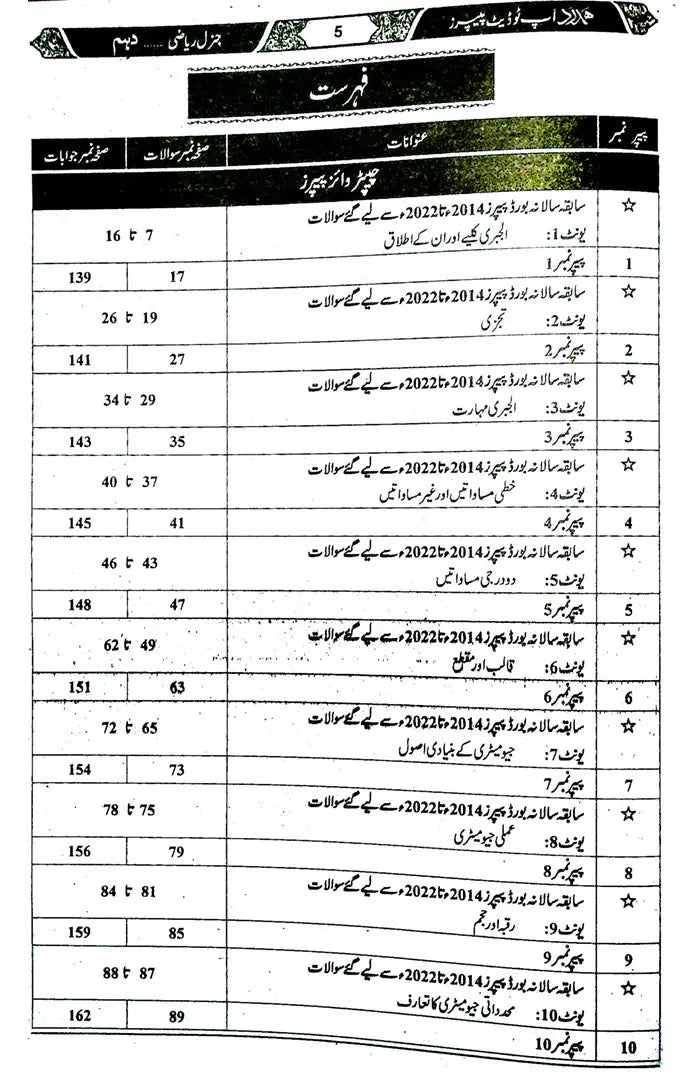 ہمدرد اپ ٹو ڈیٹ پیپرز
5
جنرل ریاضی ...... دہم
فہرست
پیپر نمبر عنوانات صفحہ نمبر سوالات صفحہ نمبر جوابات
چیپٹر وائز پیپرز
☆ سابقہ سالانہ بورڈ پیپرز 2014ء تا 2022ء سے لیے گئے سوالات
یونٹ 1: الجبری کلیے اور ان کے اطلاق 7 تا 16
1 پیپر نمبر 1 17 139
☆ سابقہ سالانہ بورڈ پیپرز 2014ء تا 2022ء سے لیے گئے سوالات
یونٹ 2: تجزی 19 تا 26
2 پیپر نمبر 2 27 141
☆ سابقہ سالانہ بورڈ پیپرز 2014ء تا 2022ء سے لیے گئے سوالات
یونٹ 3: الجبری مہارت 29 تا 34
3 پیپر نمبر 3 35 143
☆ سابقہ سالانہ بورڈ پیپرز 2014ء تا 2022ء سے لیے گئے سوالات
یونٹ 4: خطی مساواتیں اور غیر مساواتیں 37 تا 40
4 پیپر نمبر 4 41 145
☆ سابقہ سالانہ بورڈ پیپرز 2014ء تا 2022ء سے لیے گئے سوالات
یونٹ 5: دو درجی مساواتیں 43 تا 46
5 پیپر نمبر 5 47 148
☆ سابقہ سالانہ بورڈ پیپرز 2014ء تا 2022ء سے لیے گئے سوالات
یونٹ 6: قالب اور مقطع 49 تا 62
6 پیپر نمبر 6 63 151
☆ سابقہ سالانہ بورڈ پیپرز 2014ء تا 2022ء سے لیے گئے سوالات
یونٹ 7: جیومیٹری کے بنیادی اصول 65 تا 72
7 پیپر نمبر 7 73 154
☆ سابقہ سالانہ بورڈ پیپرز 2014ء تا 2022ء سے لیے گئے سوالات
یونٹ 8: عملی جیومیٹری 75 تا 78
8 پیپر نمبر 8 79 156
☆ سابقہ سالانہ بورڈ پیپرز 2014ء تا 2022ء سے لیے گئے سوالات
یونٹ 9: رقبہ اور حجم 81 تا 84
9 پیپر نمبر 9 85 159
☆ سابقہ سالانہ بورڈ پیپرز 2014ء تا 2022ء سے لیے گئے سوالات
یونٹ 10: محدداتی جیومیٹری کا تعارف 87 تا 88
10 پیپر نمبر 10 89 162